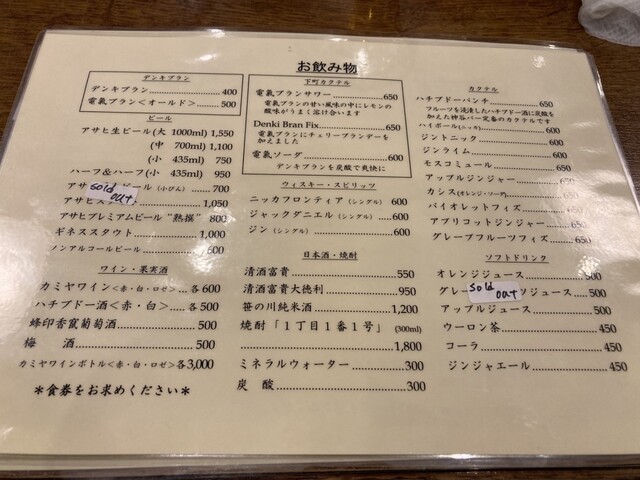 お飲み物
デンキブラン
デンキブラン 400
電氣ブラン<オールド> 500
ビール
アサヒ生ビール(大 1000ml) 1,550
(中 700ml) 1,100
(小 435ml) 750
ハーフ&ハーフ(小 435ml) 950
アサ sold out ビール(小びん) 700
アサヒス 1,050
アサヒプレミアムビール"熟撰" 800
ギネススタウト 1,000
ノンアルコールビール 600
ワイン・果実酒
カミヤワイン<赤・白・ロゼ> 各600
ハチブドー酒<赤・白> 各500
蜂印香竄葡萄酒 500
梅 酒 500
カミヤワインボトル<赤・白・ロゼ> 各3,000
*食券をお求めください*
下町カクテル
電氣ブランサワー 650
電氣ブランの甘い風味の中にレモンの
酸味がうまく溶け合います
Denki Bran Fix 650
電氣ブランにチェリーブランデーを
加えました
電氣ソーダ 600
デンキブランを炭酸で爽快に
ウィスキー・スピリッツ
ニッカフロンティア(シングル) 600
ジャックダニエル(シングル) 600
ジン(シングル) 600
日本酒・焼酎
清酒富貴 550
清酒富貴大徳利 950
笹の川純米酒 1,200
焼酎「1丁目1番1号」(300ml)
1,800
ミネラルウォーター 300
炭 酸 300
カクテル
ハチブドーパンチ 650
フルーツを浸漬したハチブドー酒に炭酸を
加えた神谷バー定番のカクテルです
ハイボール(ニッカ) 600
ジントニック 600
ジンライム 600
モスコミュール 650
アップルジンジャー 650
カシス(オレンジ・ソーダ) 650
バイオレットフィズ 650
アプリコットジンジャー 650
グレープフルーツフィズ 650
ソフトドリンク
オレンジジュース 500
グレー sold out ツジュース 500
アップルジュース 500
ウーロン茶 450
コーラ 450
ジンジャエール 450